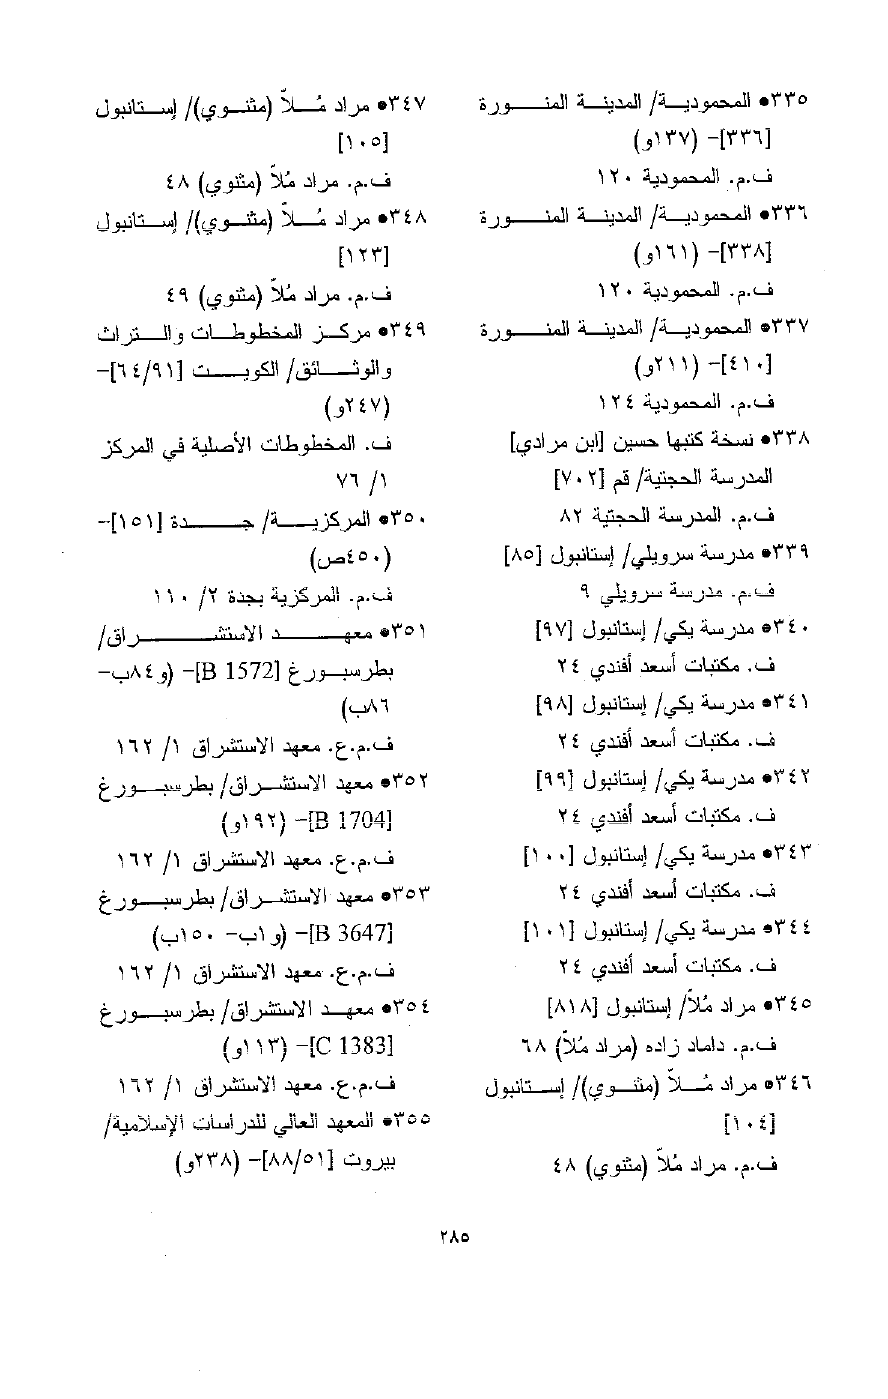 ٣٣٥• المحمودية/ المدينة المنورة
[٣٣٦]– (١٣٧و)
ف.م. المحمودية ١٢٠
٣٣٦• المحمودية/ المدينة المنورة
[٣٣٨]– (١٦١و)
ف.م. المحمودية ١٢٠
٣٣٧• المحمودية/ المدينة المنورة
[٤١٠]– (٢١١و)
ف.م. المحمودية ١٢٤
٣٣٨• نسخة كتبها حسين [ابن مرادي]
المدرسة الحجتية/ قم [٧٠٢]
ف.م. المدرسة الحجتية ٨٢
٣٣٩• مدرسة سرويلي/ إستانبول [٨٥]
ف.م. مدرسة سرويلي ٩
٣٤٠• مدرسة يكي/ إستانبول [٩٧]
ف. مكتبات أسعد أفندي ٢٤
٣٤١• مدرسة يكي/ إستانبول [٩٨]
ف. مكتبات أسعد أفندي ٢٤
٣٤٢• مدرسة يكي/ إستانبول [٩٩]
ف. مكتبات أسعد أفندي ٢٤
٣٤٣• مدرسة يكي/ إستانبول [١٠٠]
ف. مكتبات أسعد أفندي ٢٤
٣٤٤• مدرسة يكي/ إستانبول [١٠١]
ف. مكتبات أسعد أفندي ٢٤
٣٤٥• مراد مُلاّ/ إستانبول [٨١٨]
ف.م. داماد زاده (مراد مُلاّ) ٦٨
٣٤٦• مراد مُلاّ (مثنوي)/ إستانبول
[١٠٤]
ف.م. مراد مُلاّ (مثنوي) ٤٨
٣٤٧• مراد مُلاّ (مثنوي)/ إستانبول
[١٠٥]
ف.م. مراد مُلاّ (مثنوي) ٤٨
٣٤٨• مراد مُلاّ (مثنوي)/ إستانبول
[١٢٣]
ف.م. مراد مُلاّ (مثنوي) ٤٩
٣٤٩• مركز المخطوطات والتراث
والوثائق/ الكويت [٦٤/٩١]–
(٢٤٧و)
ف. المخطوطات الأصلية في المركز
١/ ٧٦
٣٥٠• المركزية/ جدة [١٥١]–
(٤٥٠ص)
ف.م. المركزية بجدة ٢/ ١١٠
٣٥١• معهد الاستشراق/
بطرسبورغ [B 1572]– (و٨٤ب–
٨٦ب)
ف.م.ع. معهد الاستشراق ١/ ١٦٢
٣٥٢• معهد الاستشراق/ بطرسبورغ
[B 1704]– (١٩٢و)
ف.م.ع. معهد الاستشراق ١/ ١٦٢
٣٥٣• معهد الاستشراق/ بطرسبورغ
[B 3647]– (و١ب– ١٥٠ب)
ف.م.ع. معهد الاستشراق ١/ ١٦٢
٣٥٤• معهد الاستشراق/ بطرسبورغ
[C 1383]– (١١٣و)
ف.م.ع. معهد الاستشراق ١/ ١٦٢
٣٥٥• المعهد العالي للدراسات الإسلامية/
بيروت [٨٨/٥١]– (٢٣٨و)
٢٨٥